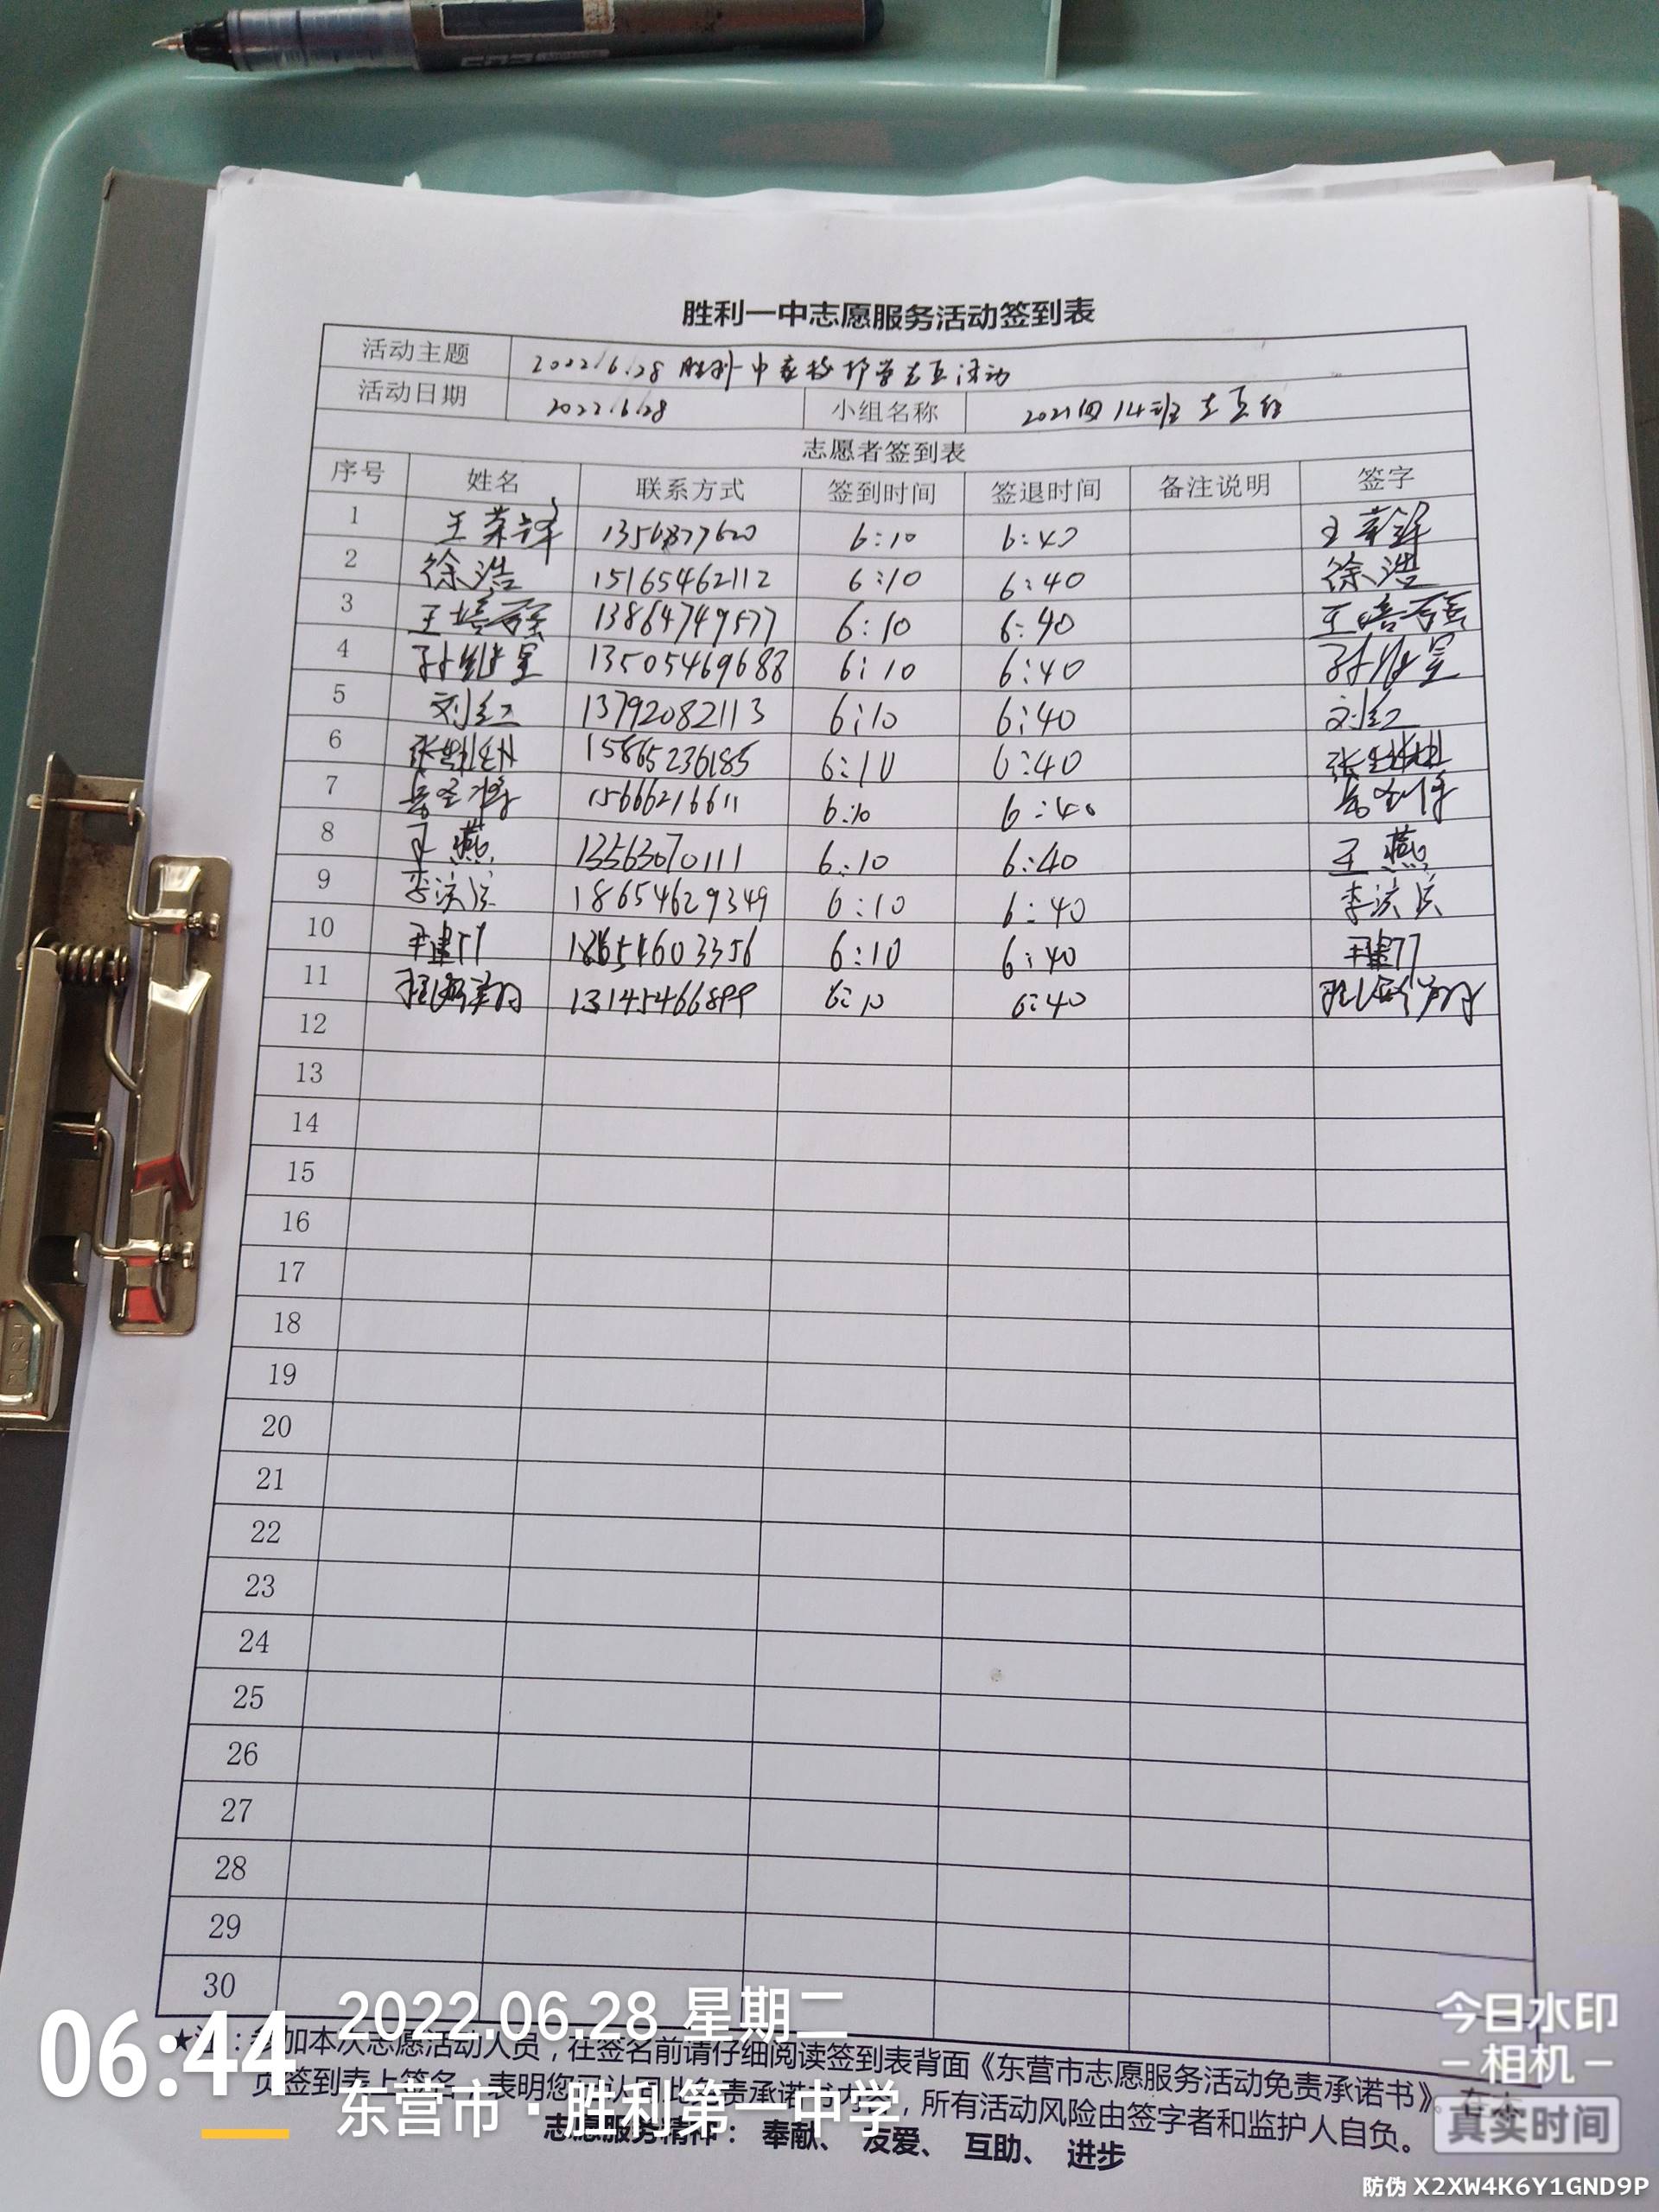 胜利一中志愿服务活动签到表
活动主题 2022.6.28 胜利一中家校护学志愿活动
活动日期 2022.6.28 小组名称 2021级14班志愿组
志愿者签到表
序号 姓名 联系方式 签到时间 签退时间 备注说明 签字
1 王荣锋 6:10 6:40 王荣锋
2 徐浩 15165462112 6:10 6:40 徐浩
3 13864749577 6:10 6:40
4 13505469688 6:10 6:40
5 刘红 13792082113 6:10 6:40 刘红
6 15865236185 6:10 6:40
7 15666216611 6:10 6:40
8 王燕 13563070111 6:10 6:40 王燕
9 18654629349 6:10 6:40
10 18654603356 6:10 6:40
11 13145466899 6:10 6:40
12
13
14
15
16
17
18
19
20
21
22
23
24
25
26
27
28
29
30
★注：参加本次志愿活动人员，在签名前请仔细阅读签到表背面《东营市志愿服务活动免责承诺书》。在本
页签到表上签名，表明您已认同此免责承诺书内容，所有活动风险由签字者和监护人自负。
志愿服务精神： 奉献、 友爱、 互助、 进步
06:44
2022.06.28 星期二
东营市·胜利第一中学
今日水印
相机
真实时间
防伪 X2XW4K6Y1GND9P